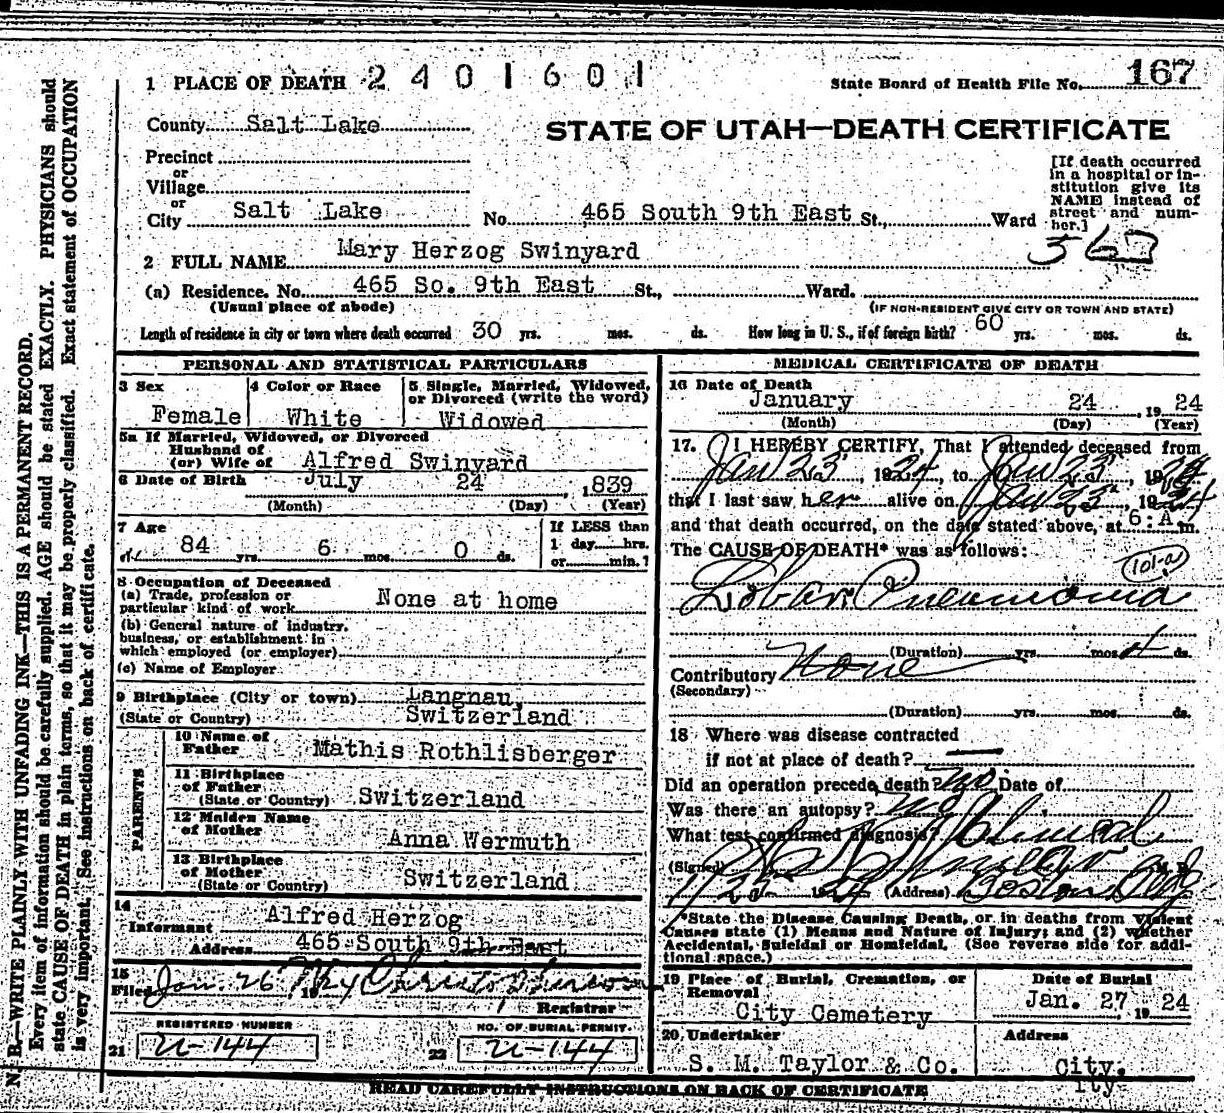 1 PLACE OF DEATH 2401601
State Board of Health File No. 167
County Salt Lake
STATE OF UTAH—DEATH CERTIFICATE
Precinct
or
Village
or
City Salt Lake No. 465 South 9th East St., Ward
[If death occurred
in a hospital or in-
stitution give its
NAME instead of
street and num-
ber.]
2 FULL NAME Mary Herzog Swinyard
(a) Residence. No. 465 So. 9th East St., Ward.
(Usual place of abode) (IF NON-RESIDENT GIVE CITY OR TOWN AND STATE)
Length of residence in city or town where death occurred 30 yrs. mos. ds. How long in U. S., if of foreign birth? 60 yrs. mos. ds.
PERSONAL AND STATISTICAL PARTICULARS
3 Sex Female
4 Color or Race White
5 Single, Married, Widowed,
or Divorced (write the word)
Widowed
5a If Married, Widowed, or Divorced
Husband of
(or) Wife of Alfred Swinyard
6 Date of Birth July 24, 1839
(Month) (Day) (Year)
7 Age
84 yrs. 6 mos. 0 ds.
If LESS than
1 day hrs.
or min. ?
8 Occupation of Deceased
(a) Trade, profession or
particular kind of work None at home
(b) General nature of industry,
business, or establishment in
which employed (or employer)
(c) Name of Employer
9 Birthplace (City or town) Langnau,
(State or Country) Switzerland
PARENTS
10 Name of
Father Mathis Rothlisberger
11 Birthplace
of Father
(State or Country) Switzerland
12 Maiden Name
of Mother Anna Wermuth
13 Birthplace
of Mother
(State or Country) Switzerland
14
Informant Alfred Herzog
Address 465 South 9th East
15
Filed Jan. 26 19
Registrar
REGISTERED NUMBER
21 U-144
NO. OF BURIAL PERMIT.
22 U-144
MEDICAL CERTIFICATE OF DEATH
16 Date of Death
January 24, 1924
(Month) (Day) (Year)
17. I HEREBY CERTIFY, That I attended deceased from
Jan 23, 1924, to Jan 23, 1924
that I last saw her alive on Jan 23, 1924
and that death occurred, on the date stated above, at 6:A m.
The CAUSE OF DEATH* was as follows:
101-a
Lobar Pneumonia
(Duration) yrs. mos. 4 ds.
Contributory None
(Secondary)
(Duration) yrs. mos. ds.
18 Where was disease contracted
if not at place of death?
Did an operation precede death? no Date of
Was there an autopsy? no
What test confirmed diagnosis? Clinical
(Signed) M. D.
1924 (Address) Boston Bldg
*State the Disease Causing Death, or in deaths from Violent
Causes state (1) Means and Nature of Injury; and (2) whether
Accidental, Suicidal or Homicidal. (See reverse side for addi-
tional space.)
19 Place of Burial, Cremation, or
Removal
City Cemetery
Date of Burial
Jan. 27, 1924
20 Undertaker
S. M. Taylor & Co.
Address
City.
READ CAREFULLY INSTRUCTIONS ON BACK OF CERTIFICATE
N. B.—WRITE PLAINLY WITH UNFADING INK—THIS IS A PERMANENT RECORD.
Every item of information should be carefully supplied. AGE should be stated EXACTLY. PHYSICIANS should
state CAUSE OF DEATH in plain terms, so that it may be properly classified. Exact statement of OCCUPATION
is very important. See instructions on back of certificate.